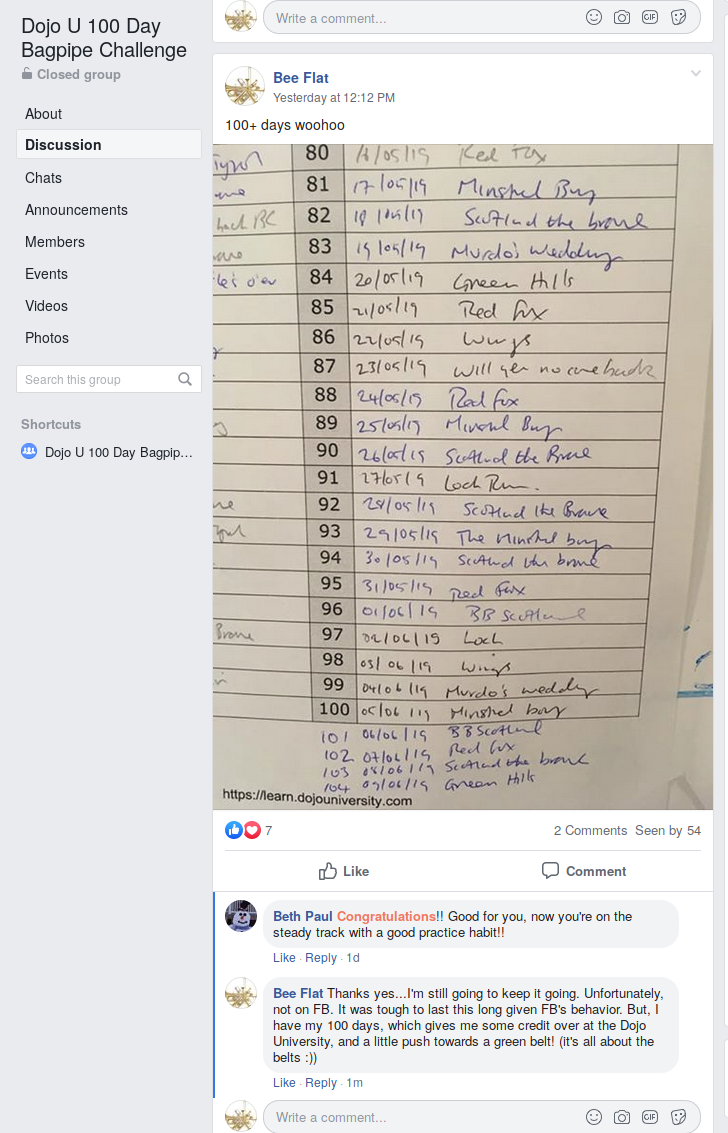 Dojo U 100 Day
Bagpipe Challenge
Closed group
About
Discussion
Chats
Announcements
Members
Events
Videos
Photos
Search this group
Shortcuts
Dojo U 100 Day Bagpip...
Write a comment...
Bee Flat
Yesterday at 12:12 PM
100+ days woohoo
80 16/05/19 Red Fox
81 17/05/19 Minstrel Boy
82 18/05/19 Scotland the brave
83 19/05/19 Murdo's wedding
84 20/05/19 Green Hills
85 21/05/19 Red fox
86 22/05/19 Wings
87 23/05/19 Will yer no come back
88 24/05/19 Red fox
89 25/05/19 Minstrel Boy
90 26/05/19 Scotland the Brave
91 27/05/19 Loch
92 28/05/19 Scotland the Brave
93 29/05/19 The minstrel boy
94 30/05/19 Scotland the brave
95 31/05/19 Red fox
96 01/06/19 BB Scotland
Brave 97 02/06/19 Loch
98 03/06/19 Wings
99 04/06/19 Murdo's wedding
100 05/06/19 Minstrel boy
101 06/06/19 BB Scotland
102 07/06/19 Red fox
103 08/06/19 Scotland the brave
104 09/06/19 Green Hills
https://learn.dojouniversity.com
7
2 Comments Seen by 54
Like Comment
Beth Paul Congratulations!! Good for you, now you're on the
steady track with a good practice habit!!
Like · Reply · 1d
Bee Flat Thanks yes...I'm still going to keep it going. Unfortunately,
not on FB. It was tough to last this long given FB's behavior. But, I
have my 100 days, which gives me some credit over at the Dojo
University, and a little push towards a green belt! (it's all about the
belts :))
Like · Reply · 1m
Write a comment...